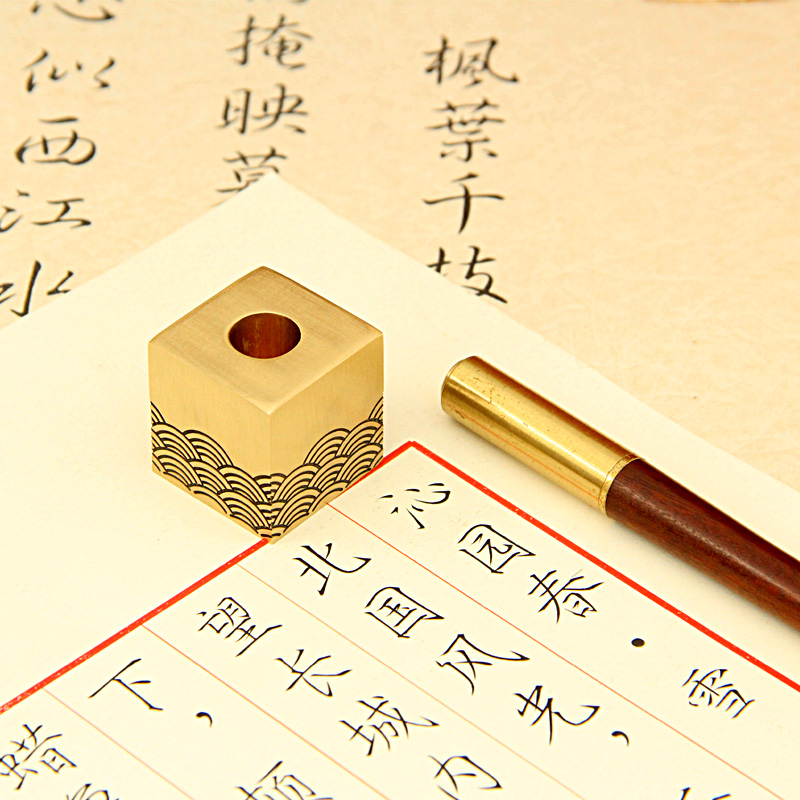 楓葉千枝
掩映
似西江水
沁园春·雪
北国风光，
望长城内
下，顿
蜡